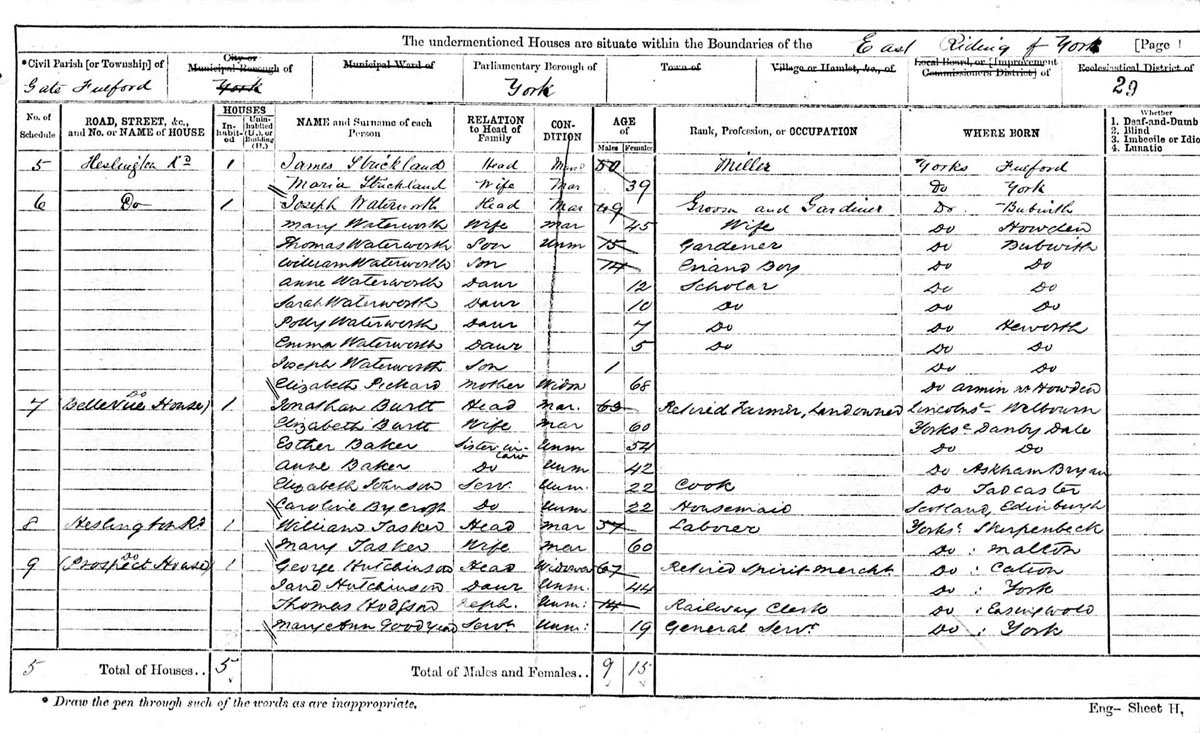 The undermentioned Houses are situate within the Boundaries of the East Riding of York [Page 1
*Civil Parish [or Township] of Gate Fulford
City or Municipal Borough of York
Municipal Ward of
Parliamentary Borough of York
Town of
Village or Hamlet, &c., of
Local Board, or [Improvement Commissioners District] of
Ecclesiastical District of 29
No. of Schedule ROAD, STREET, &c., and No. or NAME of HOUSE HOUSES Inhabited Uninhabited (U.), or Building (B.) NAME and Surname of each Person RELATION to Head of Family CONDITION AGE of Males Females Rank, Profession, or OCCUPATION WHERE BORN Whether 1. Deaf-and-Dumb 2. Blind 3. Imbecile or Idio 4. Lunatic
5 Heslington Rd 1 James Strickland Head Mar 50 Miller Yorks Fulford
Maria Strickland Wife Mar 39 Do York
6 Do 1 Joseph Waterworth Head Mar 49 Groom and Gardiner Do Bubwith
Mary Waterworth Wife Mar 45 Wife Do Howden
Thomas Waterworth Son Unm 15 Gardener Do Bubwith
William Waterworth Son 14 Errand Boy Do Do
Anne Waterworth Daur 12 Scholar Do Do
Sarah Waterworth Daur 10 Do Do Do
Polly Waterworth Daur 7 Do Do Heworth
Emma Waterworth Daur 5 Do Do Do
Joseph Waterworth Son 1 Do Do
Elizabeth Pickard Mother Widow 68 Do Armin nr Howden
7 Do (Belle Vue House) 1 Jonathan Burtt Head Mar. 63 Retired Farmer, Landowner Lincolns Welbourn
Elizabeth Burtt Wife Mar 60 Yorks Danby Dale
Esther Baker Sister in law Unm 54 Do Do
Anne Baker Do Unm 42 Do Askham Bryan
Elizabeth Johnson Serv. Unm. 22 Cook Do Tadcaster
Caroline Bycroft Do Unm 22 Housemaid Scotland, Edinburgh
8 Heslington Rd 1 William Tasker Head Mar 57 Laborer Yorks. Skerpenbeck
Mary Tasker Wife Mar 60 Do : Malton
9 Do (Prospect House) 1 George Hutchinson Head Widower 67 Retired Spirit Mercht. Do :
Jane Hutchinson Daur Unm. 44 Do : York
Thomas Hodgson Neph. Unm: 14 Railway Clerk Do : Easingwold
Mary Ann Goodyear Servt. Unm: 19 General Servt. Do : York
5 Total of Houses.. 5 Total of Males and Females.. 9 15
* Draw the pen through such of the words as are inappropriate.
Eng– Sheet H,